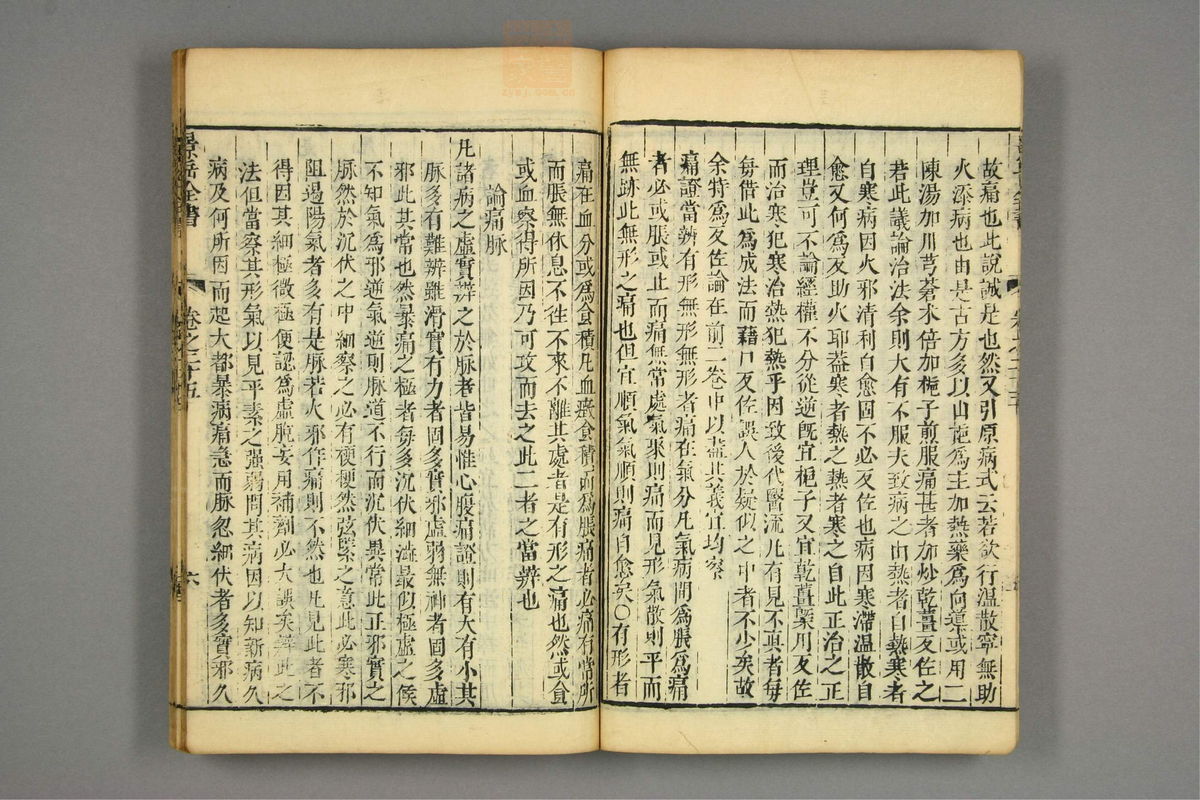 故痛也此說誠是也然又引原病式云若欲行温散寧無助
火添病也由是古方多以山梔爲主加熱藥爲向導或用二
陳湯加川芎蒼术倍加梔子煎服痛甚者加炒乾薑反佐之
若此議論治法余則大有不服夫致病之由熱者自熱寒者
自寒病因火邪清利自愈固不必反佐也病因寒滯温散自
愈又何爲反助火耶葢寒者熱之熱者寒之自此正治之正
理豈可不論經權不分從逆既宜梔子又宜乾薑槩用反佐
而治寒犯寒治熱犯熱乎因致後代醫流凡有見不真者每
每借此爲成法而藉口反佐誤人於疑似之中者不少矣故
余特爲反佐論在前二卷中以盡其義宜均察
痛證當辨有形無形無形者痛在氣分凡氣病而爲脹爲痛
者必或脹或止而痛無常處氣聚則痛而見形氣散則平而
無跡此無形之痛也但宜順氣氣順則痛自愈矣○有形者
痛在血分或爲食積凡血癥食積而爲脹痛者必痛有常所
而脹無休息不往不來不離其處者是有形之痛也然或食
或血察得所因乃可攻而去之此二者之當辨也
論痛脉
凡諸病之虛實辨之於脉者皆易惟心腹痛證則有大有小其
脉多有難辨雖滑實有力者固多實邪虛弱無神者固多虛
邪此其常也然暴痛之極者每多沉伏細澁最似極虛之候
不知氣爲邪逆氣逆則脉道不行而沉伏異常此正邪實之
脉然於沉伏之中細察之必有梗梗然弦緊之意此必寒邪
阻遏陽氣者多有是脉若火邪作痛則不然也凡見此者不
得因其細極微極便認爲虛脫妄用補劑必大誤矣辨此之
法但當察其形氣以見平素之强弱問其病因以知新病久
病及何所因而起大都暴病痛急而脉忽細伏者多實邪久
景岳全書
卷之二十五
六